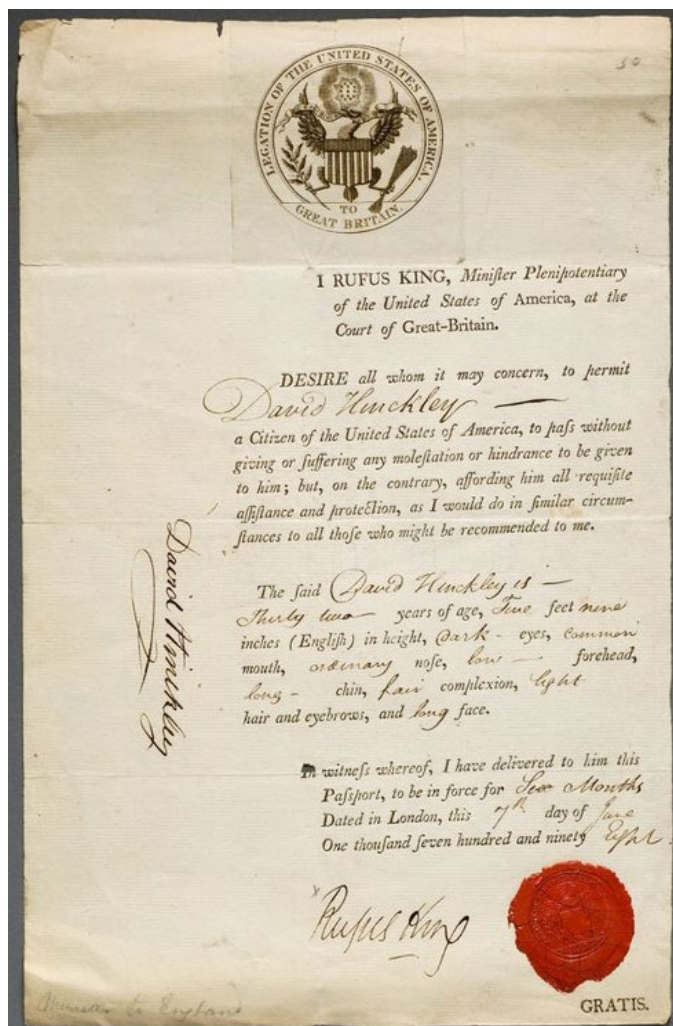 LEGATION OF THE UNITED STATES OF AMERICA.
TO
GREAT BRITAIN.
I RUFUS KING, Miniſter Plenipotentiary
of the United States of America, at the
Court of Great-Britain.
DESIRE all whom it may concern, to permit
David Hinckley —
a Citizen of the United States of America, to paſs without
giving or ſuffering any moleſtation or hindrance to be given
to him; but, on the contrary, affording him all requiſite
aſſiſtance and protection, as I would do in ſimilar circum-
ſtances to all thoſe who might be recommended to me.
David Hinckley
The ſaid David Hinckley is —
Thirty two — years of age, Five feet nine
inches (Engliſh) in height, Dark - eyes, common
mouth, ordinary noſe, low — forehead,
long - chin, fair complexion, light
hair and eyebrows, and long face.
In witneſs whereof, I have delivered to him this
Paſſport, to be in force for Six Months
Dated in London, this 7th day of June
One thouſand ſeven hundred and ninety Eight
Rufus King
Minister to England
GRATIS.